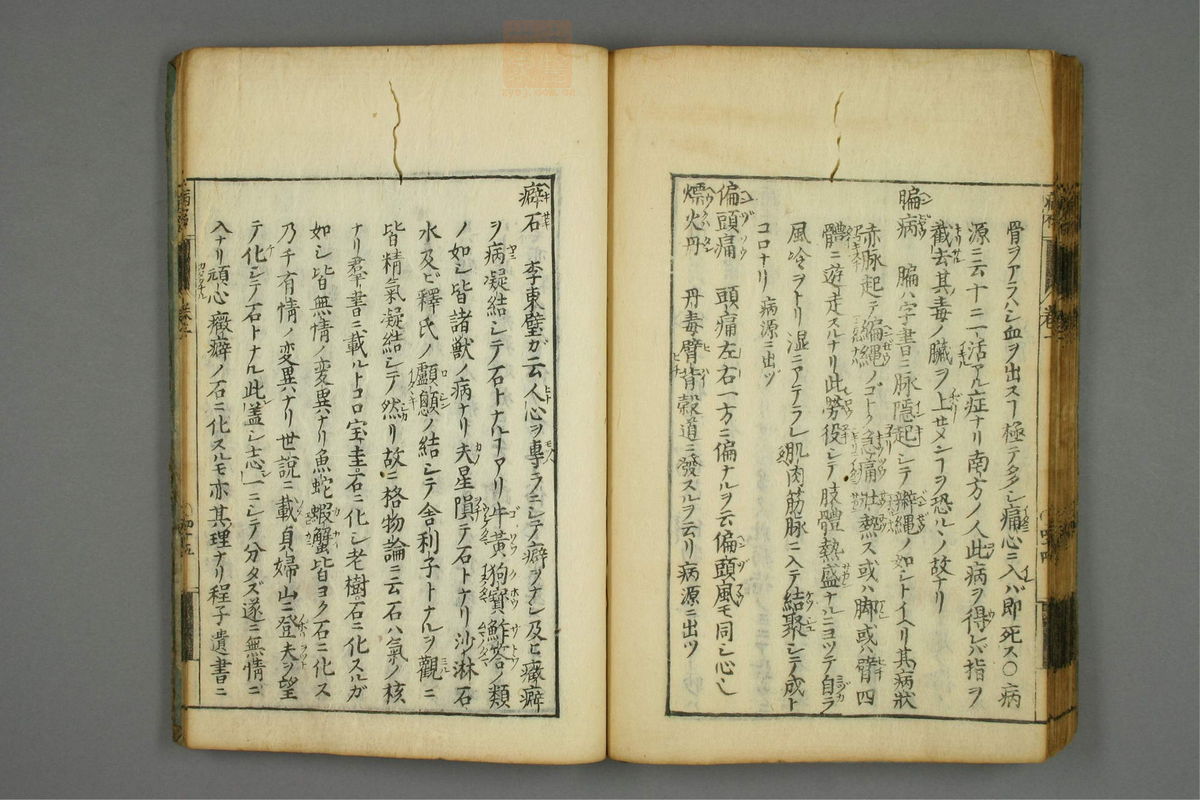 骨ヲアラハシ血ヲ出スヿ極テタダシ痛心ニ入バ即死ス○病
源ニ云十二ニ一活アル症ナリ南方ノ人此病ヲ得レバ指ヲ
截去其毒ノ臓ヲ上セメンヿヲ恐ルヽノ故ナリ
㿀病 㿀ハ字書ニ脉隱起シテ辮縄ノ如シトイヘリ其病狀
赤脉起テ編縄ノゴトク急痛壯熱ス或ハ脚或ハ臂四
體ニ遊走スルナリ此勞役シテ肢體熱盛ナルニヨツテ自ラ
風冷ヲトリ湿ニアテラレ肌肉筋脉ニ入テ結聚シテ成ト
コロナリ 病源ニ出ヅ
偏頭痛 頭痛左右一方ニ偏ナルヲ云偏頭風モ同シ心シ
熛火丹 丹毒臂背穀道ニ發スルヲ云リ病源ニ出ヅ
癖石 李東璧ガ云人心ヲ專ラニシテ癖ヲナシ及ヒ癥癖
ヲ病凝結シテ石トナルヿアリ牛黃狗寶鮓荅ノ類
ノ如シ皆諸獸ノ病ナリ夫星隕テ石トナリ沙淋石
水及ヒ釋氏ノ顱顖ノ結シテ舎利子トナルヲ觀ニ
皆精氣凝結シテ然リ故ニ格物論ニ云石ハ氣ノ核
ナリ羣書ニ載ルトコロ宝圭石ニ化シ老樹石ニ化スルガ
如シ皆無情ノ変異ナリ魚蛇蝦蟹皆ヨク石ニ化ス
乃チ有情ノ変異ナリ世說ニ載貞婦山ニ登夫ヲ望
テ化シテ石トナル此蓋シ志一ニシテ分タズ遂ニ無情ニ
入ナリ頑心癥癖ノ石ニ化スルモ亦其理ナリ程子遺書ニ